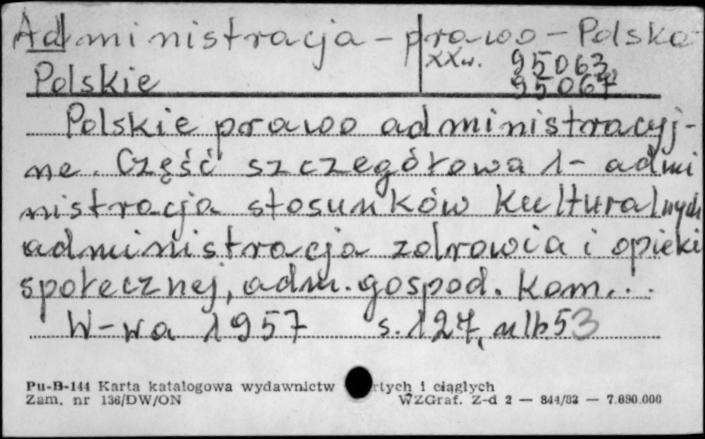 Administracja - prawo - Polska
XXw. 95063
Polskie 95067
Polskie prawo administracyj-
ne. Część szczegółowa 1- admi
nistracja stosunków kulturalnych
administracja zdrowia i opieki
społecznej, adm. gospod. kom...
W-wa 1957 s. 127, nlb 53
Pu-B-144 Karta katalogowa wydawnictw rtych i ciągłych
Zam. nr 136/DW/ON WZGraf. Z-d 2 — 844/83 — 7.680.000